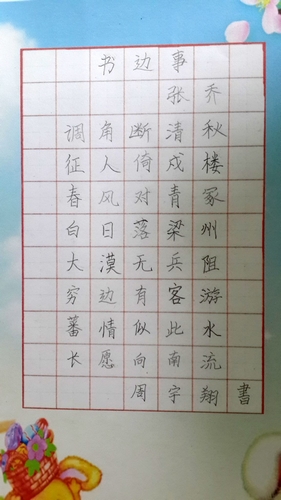 书边事
张乔
调角断清秋
征人倚戍楼
春风对青冢
白日落梁州
大漠无兵阻
穷边有客游
蕃情似此水
长愿向南流
周宇翔書